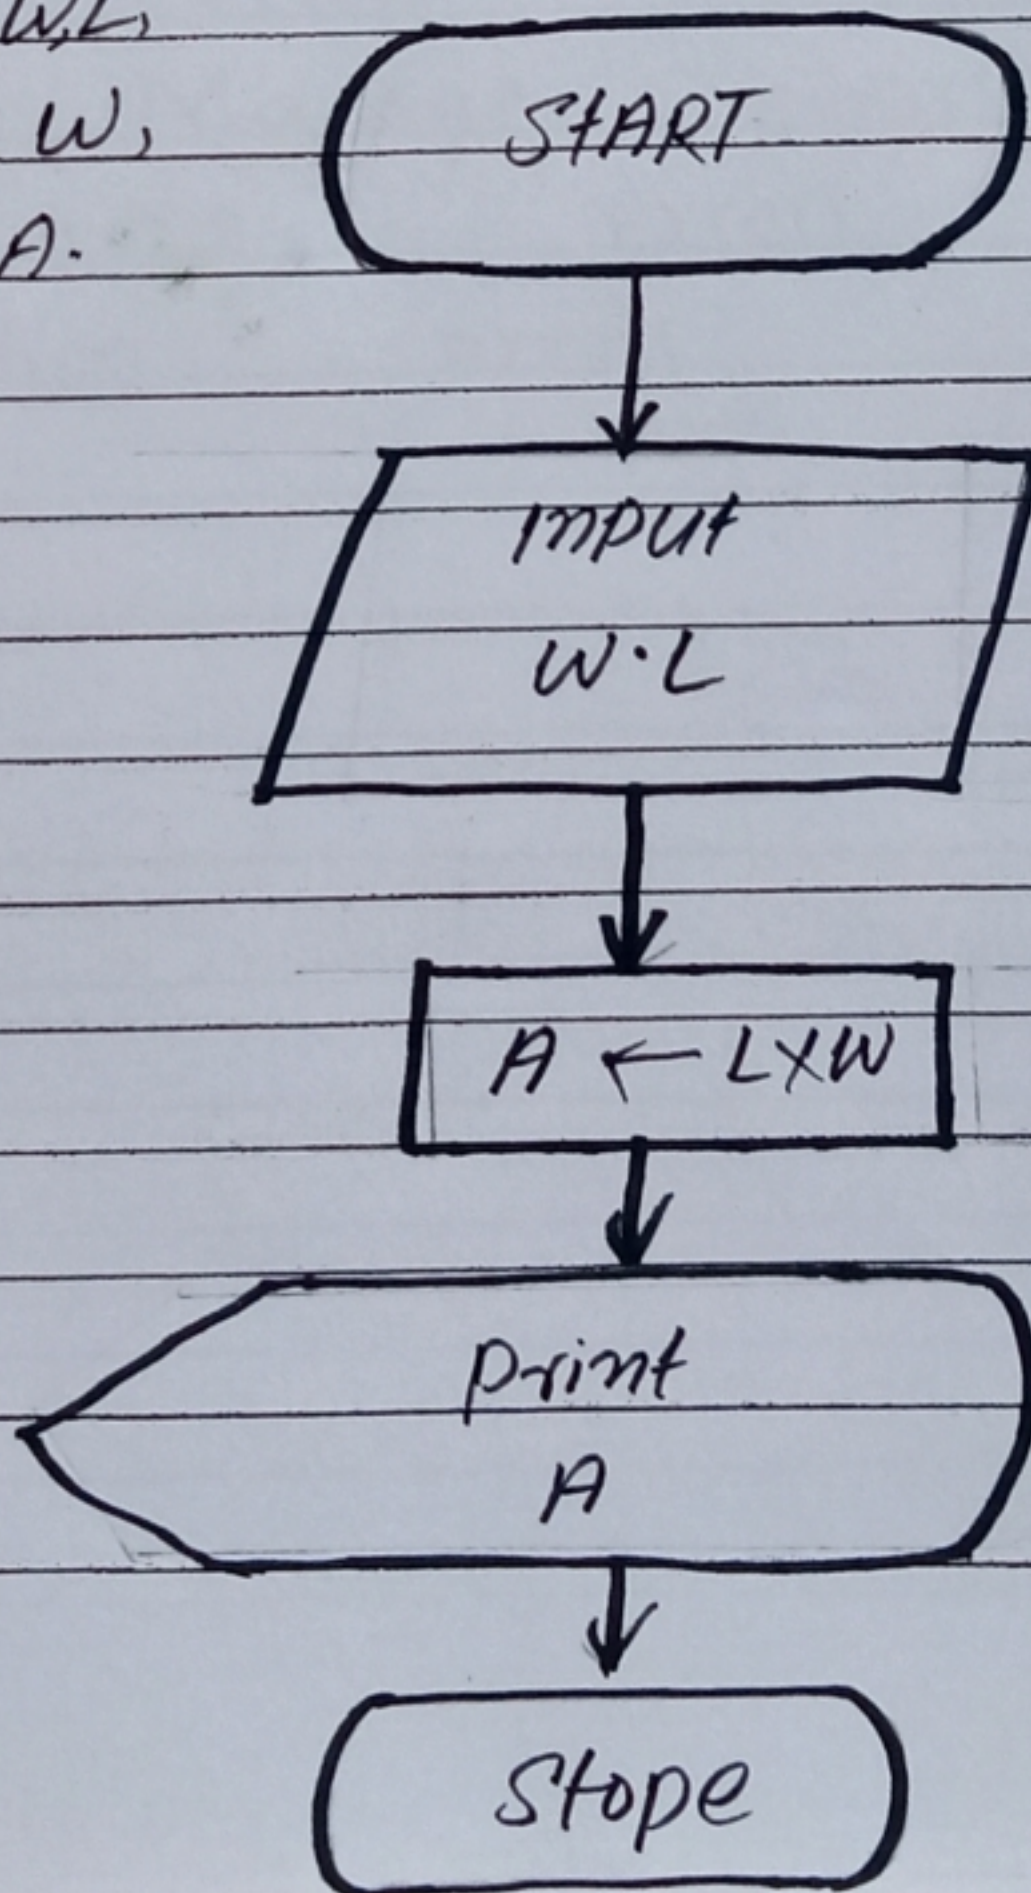 W,L,
W,
A.
START
Input
W.L
A ← LXW
print
A
Stope